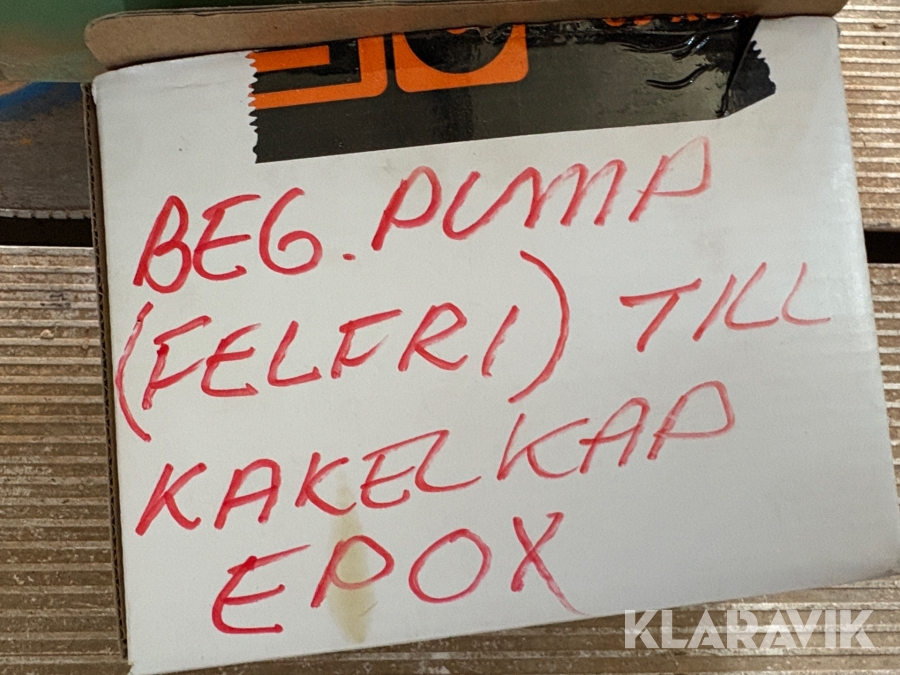 BEG. PUMP
(FELFRI) TILL
KAKELKAP
EPOX
KLARAVIK